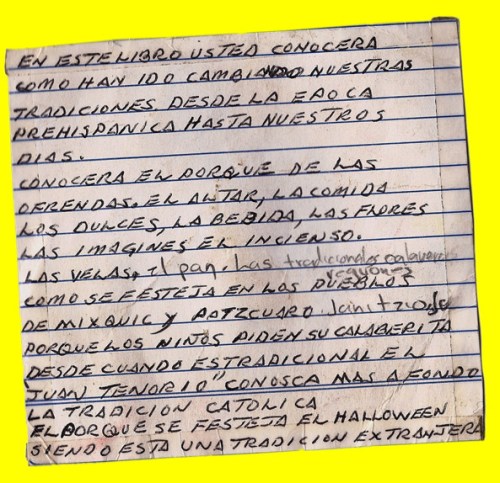 EN ESTE LIBRO USTED CONOCERA
COMO HAN IDO CAMBIANDO NUESTRAS
TRADICIONES DESDE LA EPOCA
PREHISPANICA HASTA NUESTROS
DIAS.
CONOCERA EL PORQUE DE LAS
OFRENDAS. EL ALTAR, LA COMIDA
LOS DULCES, LA BEBIDA, LAS FLORES
LAS IMAGINES EL INCIENSO.
LAS VELAS, El pan. Las tradicionales calaveras
COMO SE FESTEJA EN LOS PUEBLOS
DE MIXQUIC y PATZCUARO Janitzio
PORQUE LOS NIÑOS PIDEN SU CALABERITA
DESDE CUANDO ES TRADICIONAL EL
"JUAN TENORIO" CONOSCA MAS A FONDO
LA TRADICION CATOLICA
EL PORQUE SE FESTEJA EL HALLOWEEN
SIENDO ESTA UNA TRADICION EXTRANJERA